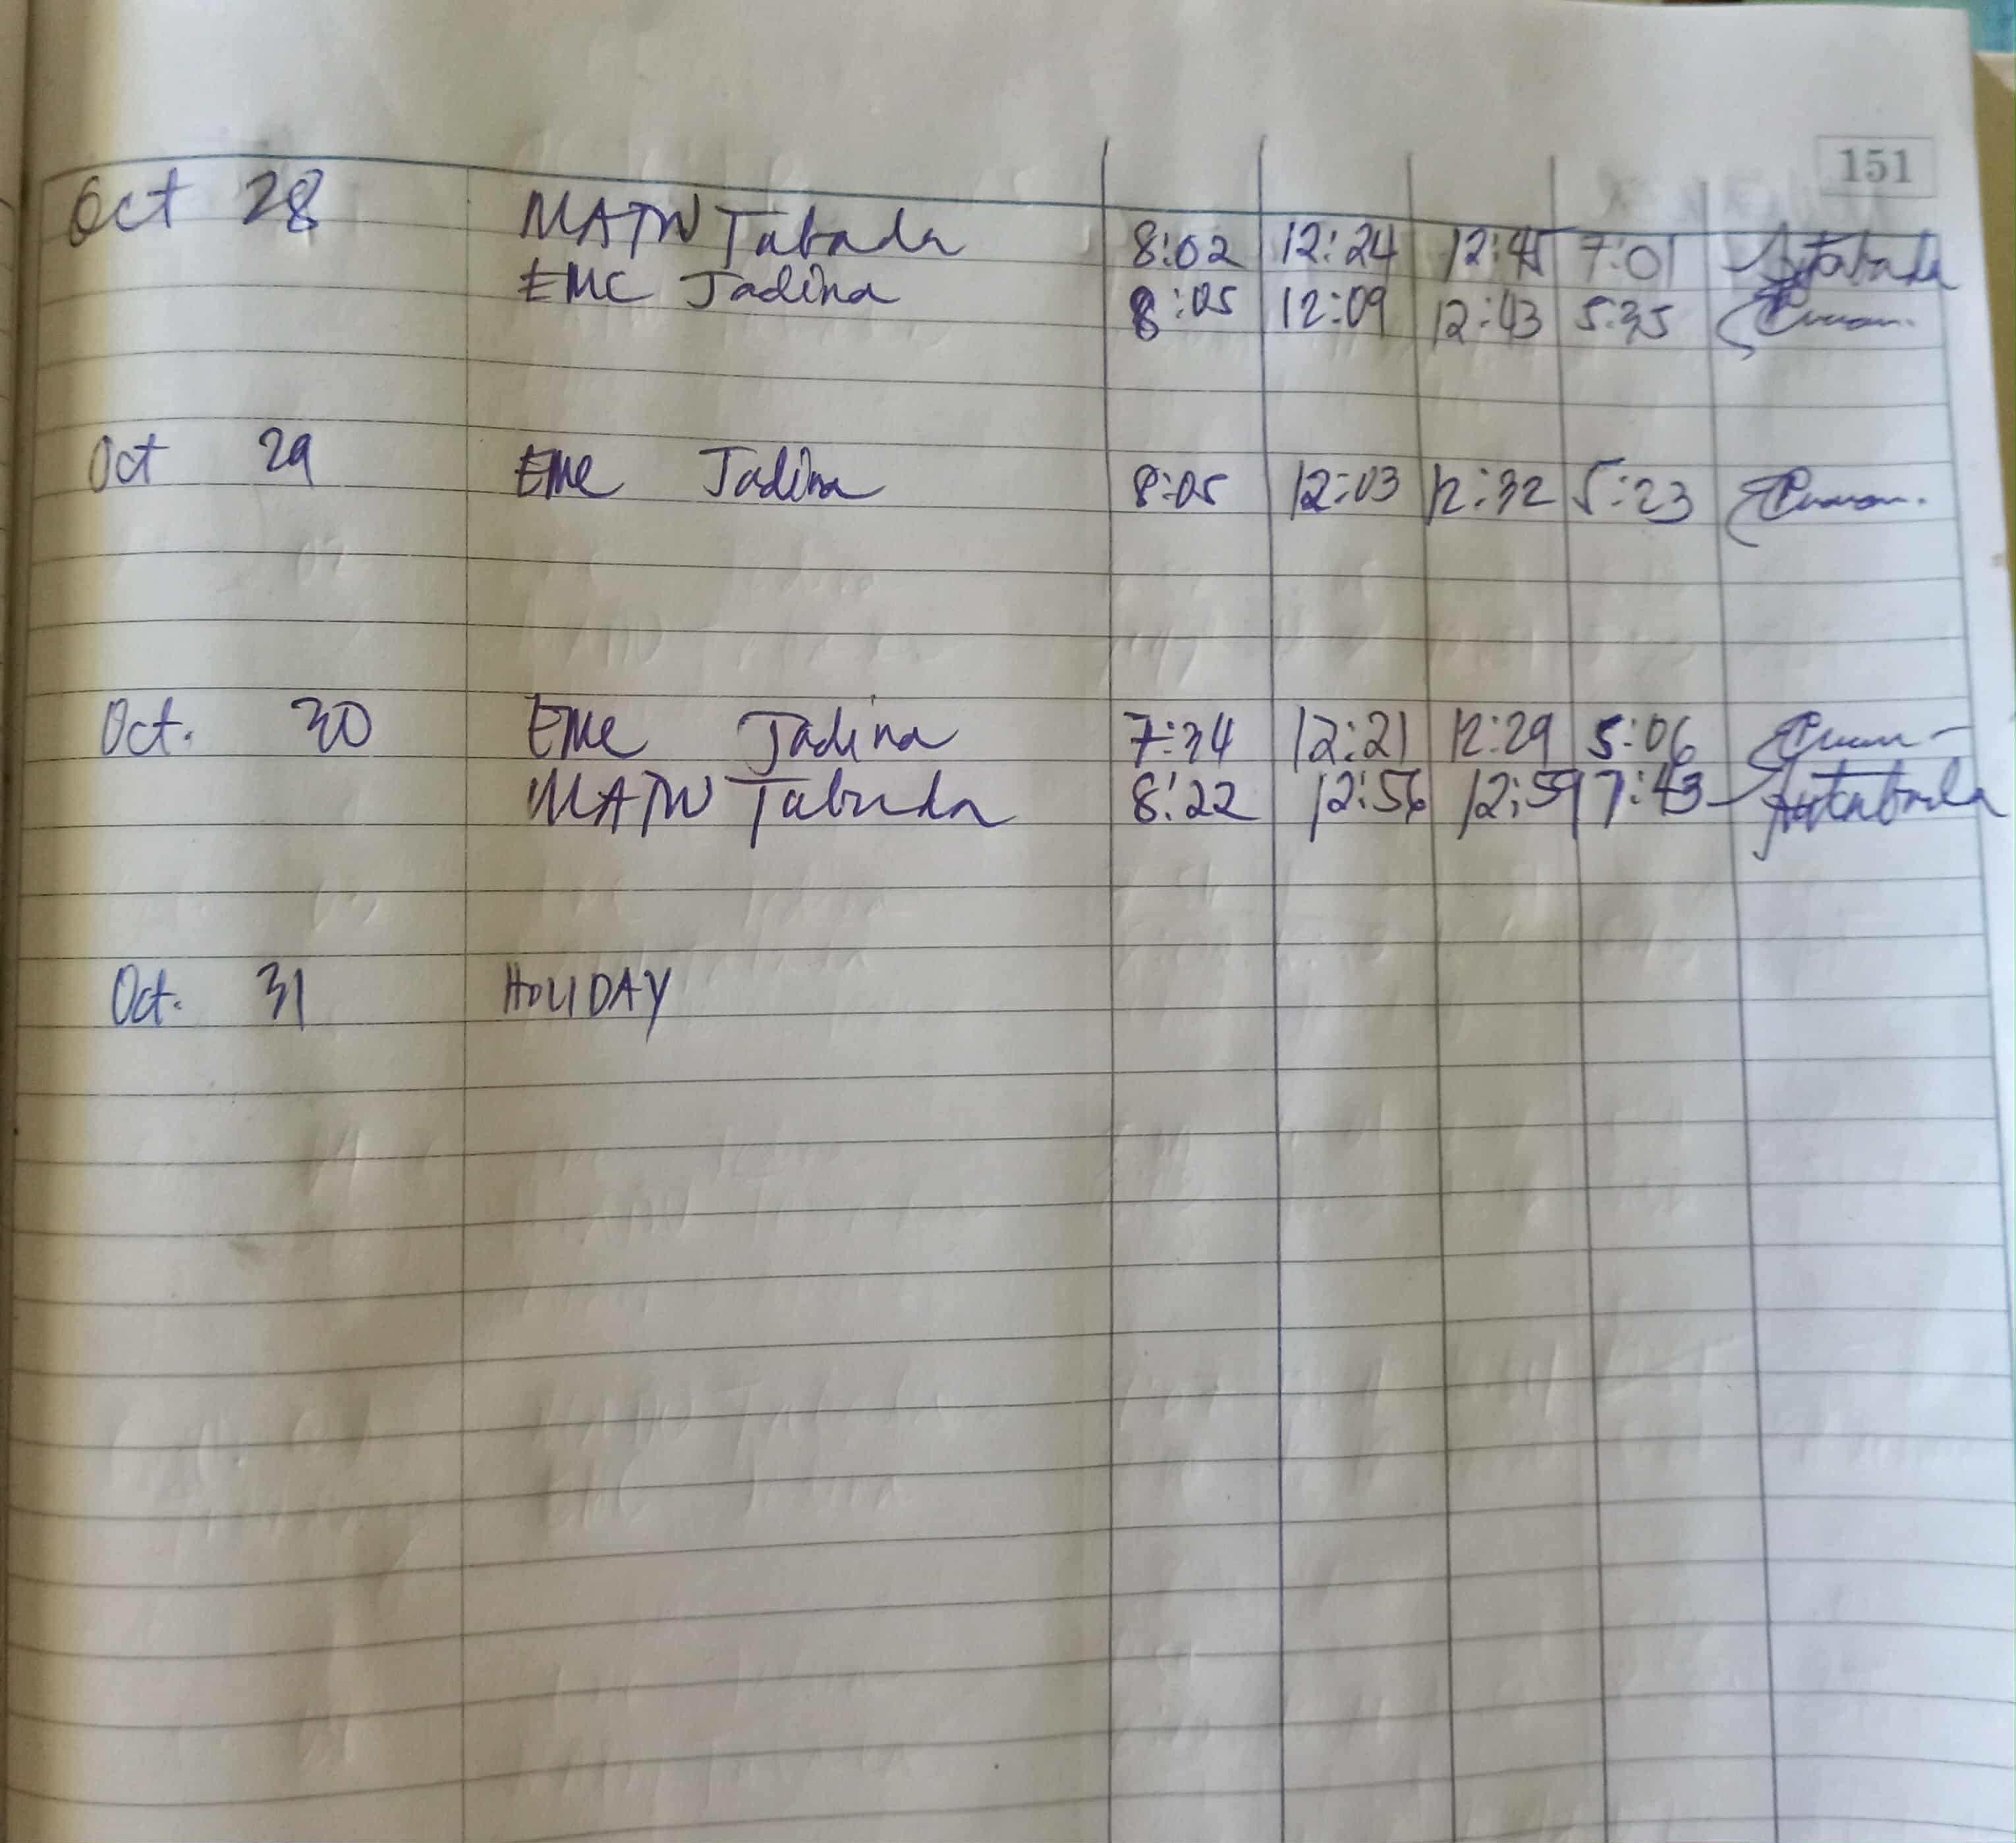 151
Oct 28 MATW Tabada 8:02 12:24 12:45 7:01
EMC Jadina 8:05 12:09 12:43 5:35
Oct 29 EMC Jadina 8:05 12:03 12:32 5:23
Oct. 30 EMC Jadina 7:34 12:21 12:29 5:06
MATW Tabada 8:22 12:56 12:59 7:43
Oct. 31 HOLIDAY